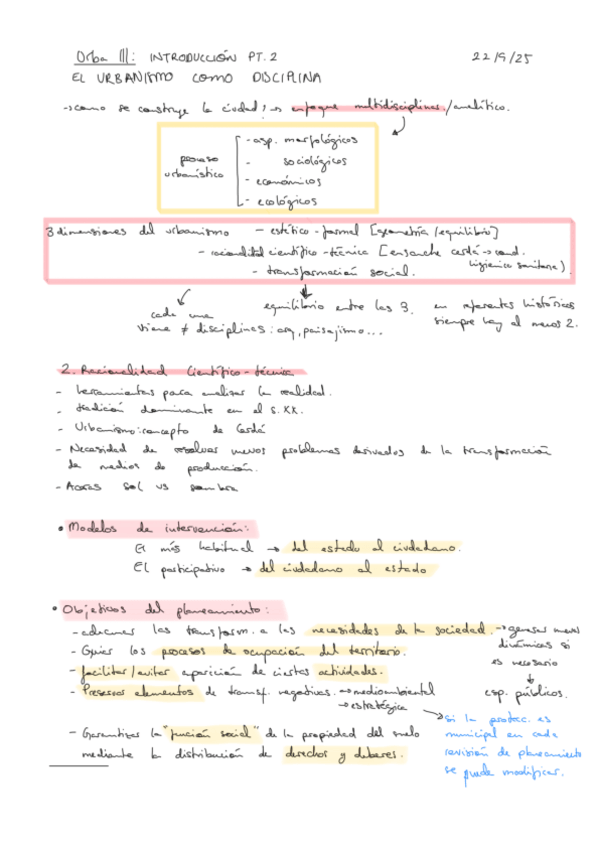 Orba III: INTRODUCCIÓN PT. 2
22/9/25
EL URBANISMO COMO DISCIPLINA
→ como se construye la ciudad? → enfoque multidisciplinar/analítico.
proceso urbanístico
- asp. morfológicos
- sociológicos
- económicos
- ecológicos
3 dimensiones del urbanismo - estético-formal [geometría/equilibrio]
- racionalidad científico-técnica [ensanche cerdà → cond. higienico sanitarias)
- transformación social.
cada una viene ≠ disciplines: arq, paisajismo...
equilibrio entre las 3.
en referentes históricos siempre hay al menos 2.
2. Racionalidad científico-técnica
- herramientas para analizar la realidad.
- tradición dominante en el s. XX.
- Urbanismo: concepto de Cerdà
- Necesidad de resolver nuevos problemas derivados de la transformación
de medios de producción.
- Aceras sol vs sombra
• Modelos de intervención:
El más habitual → del estado al ciudadano.
El participativo → del ciudadano al estado
• Objetivos del planeamiento:
- adecuar las transform. a las necesidades de la sociedad. → generar nuevas
dinámicas si
es necesario
esp. públicos.
- Guiar los procesos de ocupación del territorio.
- facilitar/evitar aparición de ciertas actividades.
- Preservar elementos de transf. negativas. → medioambiental
→ estratégica
→ si la protec. es
municipal en cada
revisión de planeamiento
se puede modificar.
- Garantizar la "función social" de la propiedad del suelo
mediante la distribución de derechos y deberes.